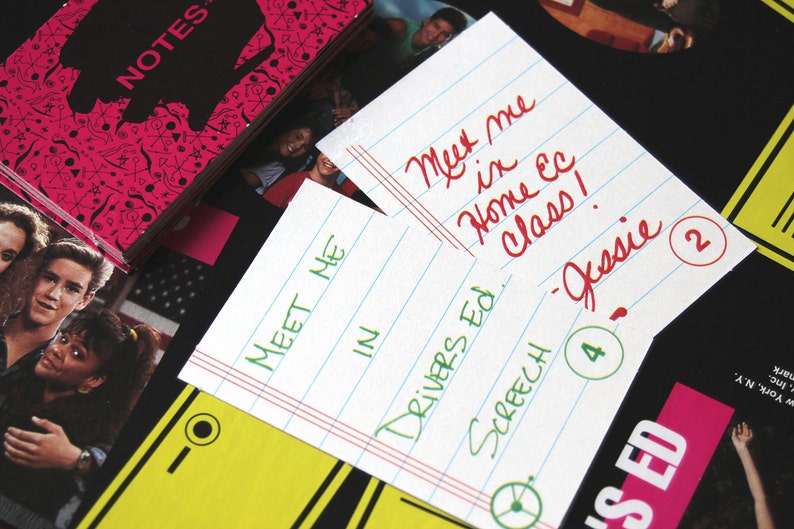 NOTES
Meet me
in
Home EC
Class!
-Jessie
2
MEET ME
IN
DRIVERS ED.
SCREECH
4
ew York, N.Y.
, Inc.
mark
S ED